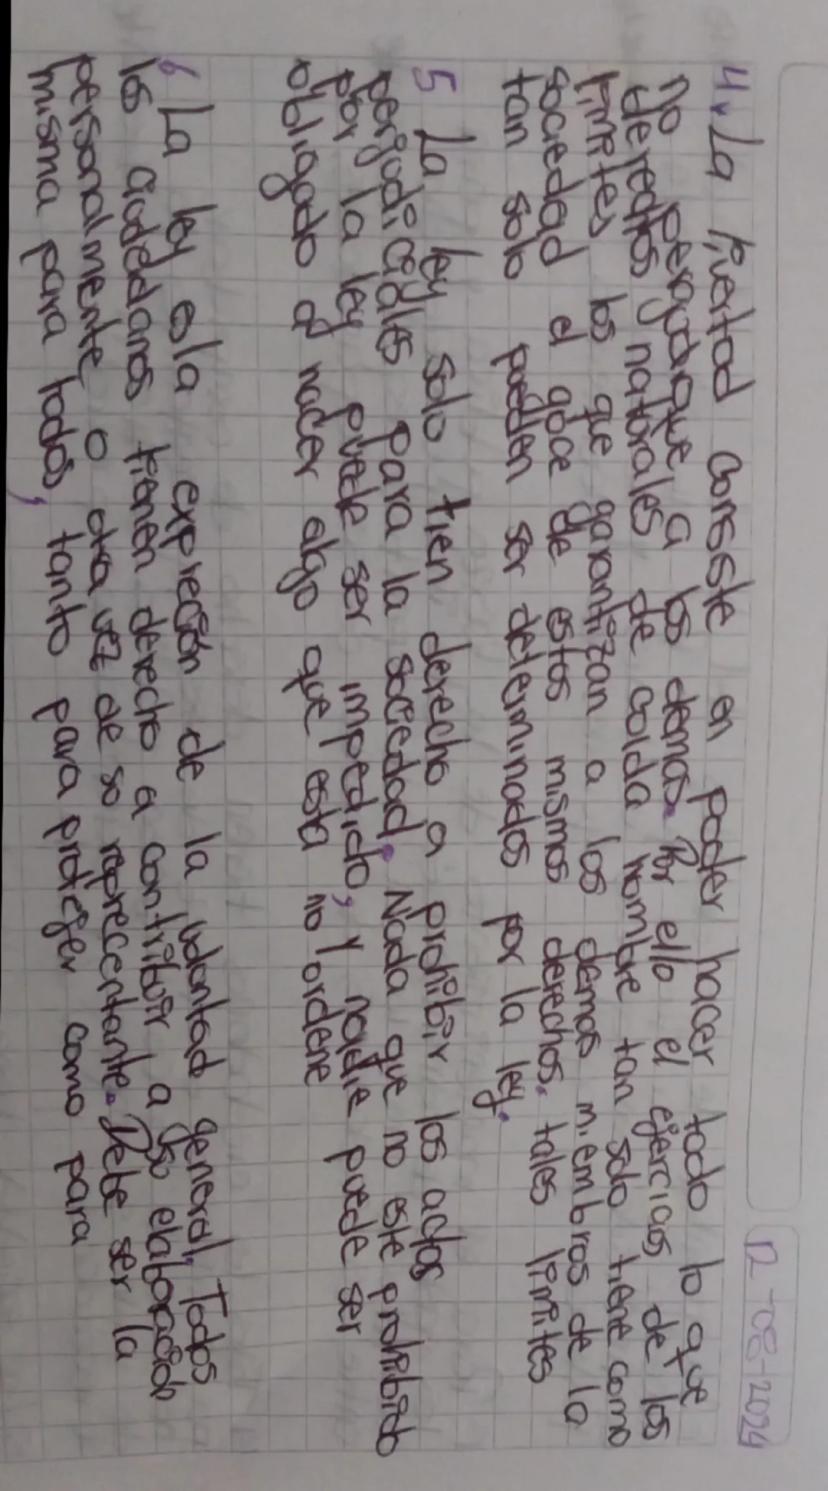 12-08-2024
4. La livertad consiste en poder hacer todo lo que
no perjudique, a los demas. Por ello el ejercicios de los
derechos naturales de caida hombre tan solo tiene como
limetes los que garantizan a los demas miembros de la
sociedad el goce de estos mismos derechos. tales limites
tan solo pueden ser determinados por la ley.
5 La ley solo tien derecho a prohibir los actos
perjudiciales para la sociedad. Nada que no este prohibido
por la ley puede ser impedido, y nadie puede ser
obligado a hacer algo que esta no ordene
6 La ley esla expreción de la volontad general, Todos
los ciudedanos tienen derecho a contribuir a so elaboración
personalmente o otra vez de so reprecentante. Debe ser la
misma para todos, tanto para proteger como para